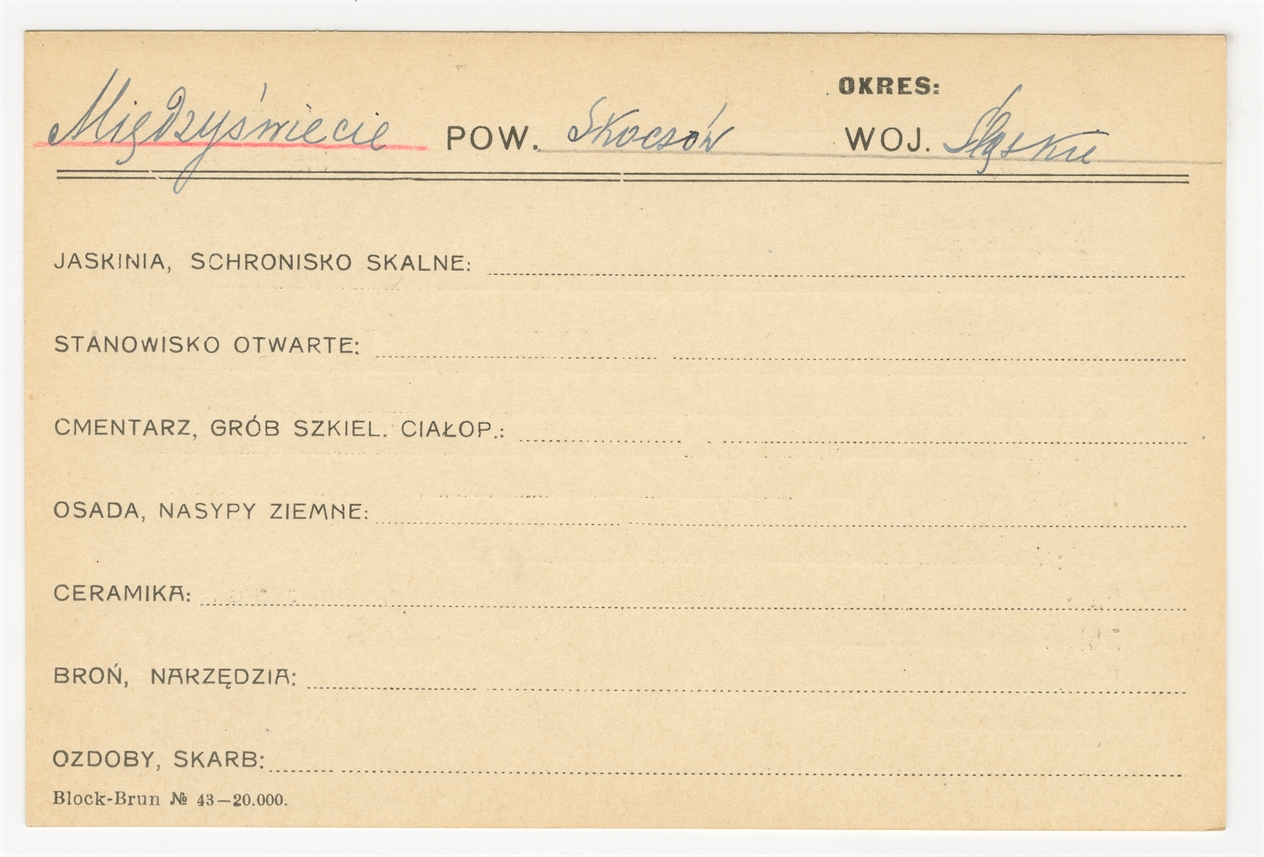 OKRES:
Międzyświecie POW. Skoczów WOJ. Śląskie
JASKINIA, SCHRONISKO SKALNE:
STANOWISKO OTWARTE:
CMENTARZ, GRÓB SZKIEL. CIAŁOP.:
OSADA, NASYPY ZIEMNE:
CERAMIKA:
BROŃ, NARZĘDZIA:
OZDOBY, SKARB:
Block-Brun № 43—20.000.